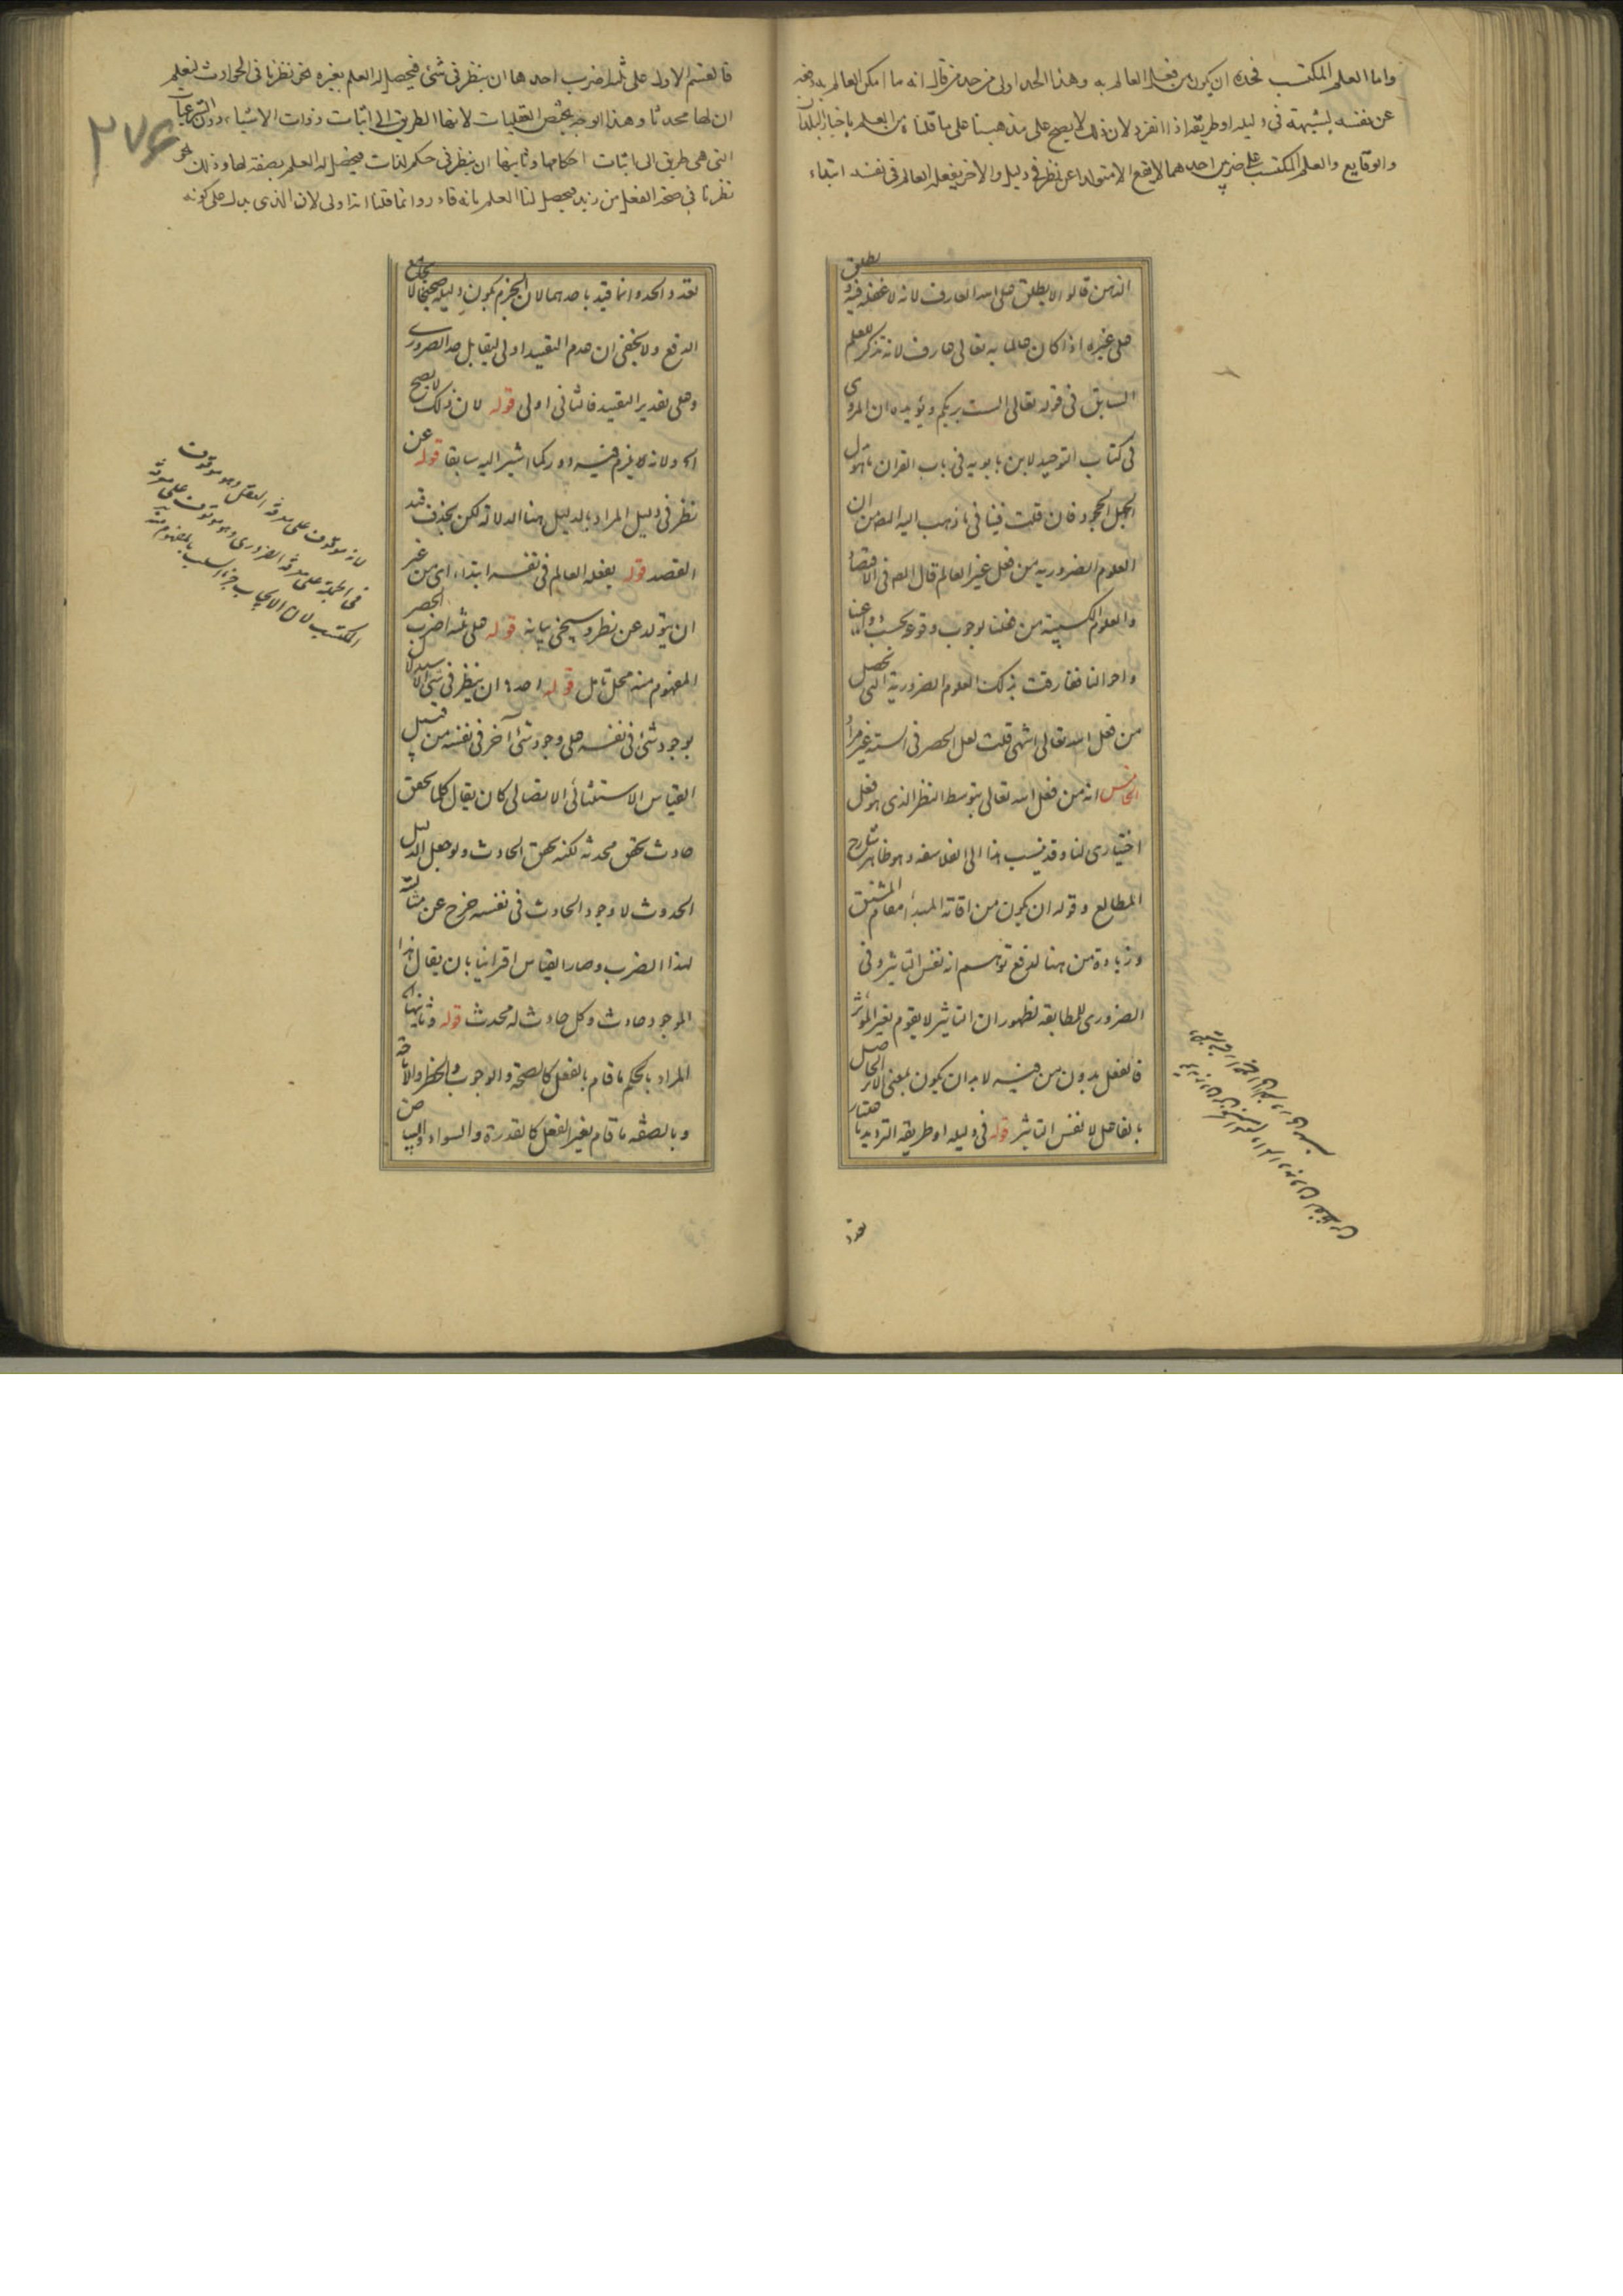 واما العلم المكتسب فحده ان يكون من فعل العالم به وهذا الحد اولى من حد من قال انه ما امكن العالم به دفعه
عن نفسه لشبهة في دليله او طريقه اذا انفرد لان ذلك لا يصح على مذهبنا على ما قلناه من العلم باخبار البلدان
والوقايع والعلم المكتسب على ضربين احدهما لا يقع الا متولدا عن نظر في دليل والاخر يفعله العالم في نفسه ابتداء
الذين قالوا لا يطلق على الله العارف لانه لا غفلة فيه و يطلق
على غيره اذا كان عالما به تعالى عارف لانه تذكر للعلم
السابق في قوله تعالى الست بربكم ويؤيده ان المروي
في كتاب التوحيد لابن بابويه في باب القران ما هو
الجهل الجحود فان قلت فينافي ما ذهب اليه المص من ان
العلوم الضرورية من فعل غير العالم قال المص في الاقتصاد
والعلوم الكسبية من فعلنا لوجوب وقوعه بحسب دواعينا
واحوالنا ففارقت بذلك العلوم الضرورية التي تحصل
من فعل الله تعالى انتهى قلت لعل الحصر في الستة غير مراد
الخامس انه من فعل الله تعالى بتوسط النظر الذي هو فعل
اختياري لنا وقد ينسب هذا الى الفلاسفه وهو ظاهر شارح
المطالع وقوله ان يكون من اقامة المبدأ مقام المشتق
وزيادة من هنا لدفع توهم انه نفس التاثير وفي
الضروري للمطابقه لظهور ان التاثير لا يقوم بغير المؤثر
فالفعل بدون من فيه لا بد ان يكون بمعنى الاثر الحاصل
بالفاعل لا نفس التاثير قوله في دليله او طريقه الترديد باعتبار
تعدد
فالقسم الاول على ثلثة اضرب احدها ان ينظر في شئ فيحصل له العلم بغيره نحو نظرنا في الحوادث لنعلم
ان لها محدثا وهذا الوجه يختص العقليات لانها الطريق الى اثبات ذوات الاشياء دون الشرعيات
التي هي طريق الى اثبات احكامها وثانيها ان ينظر في حكم لذات فيحصل له العلم بصفة لها وذلك نحو
نظرنا في صحة الفعل من زيد فيحصل لنا العلم بانه قادر وانما قلنا انه اولى لان الذي يدل على كونه
۲۷۶
تعدد الحد وانما قيد باحدهما لان الجزم بكون دليله صحيحا لا يجامع
الدفع ولا يخفى ان عدم التقييد اولى ليقابل حد الضروري
وعلى تقدير التقييد فالثاني اولى قوله لان ذلك لا يصح
الخ ولانه يلزم فيه دور كما اشير اليه سابقا قوله عن
نظر في دليل المراد بالدليل هنا الدلالة لكن بحذف قيد
القصد قوله يفعله العالم في نفسه ابتداء اى من غير
ان يتولد عن نظر وسيجئ بيانه قوله على ثلثة اضرب الحصر
المفهوم منه محل تامل قوله احدها ان ينظر في شئ الاستدلال
بوجود شئ في نفسه على وجود شئ آخر في نفسه من قبيل
القياس الاستثنائي الاتصالى كان يقال كلما تحقق
حادث تحقق محدثه لكنه تحقق الحادث ولو جعل الدليل
الحدوث لا وجود الحادث في نفسه خرج عن مثالية
لهذا الضرب وصار القياس اقترانيا بان يقال هذا
الموجود حادث وكل حادث له محدث قوله وثانيها
المراد بالحكم ما قام بالفعل كالصحة والوجوب والحظر والاباحة
وبالصفه ما قام بغير الفعل كالقدرة والسواد والبياض
لانه موقوف على معرفة العقل وهو موقوف
في الجملة على معرفة الضروري وهو موقوف على معرفة
المكتسب لان الايجاب جزء السلب بالمفهوم منه